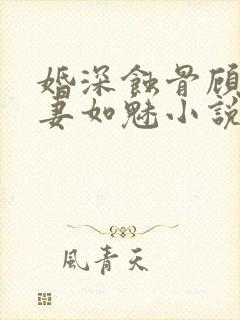 婚深蝕骨顧
妻如魅小說
風青天